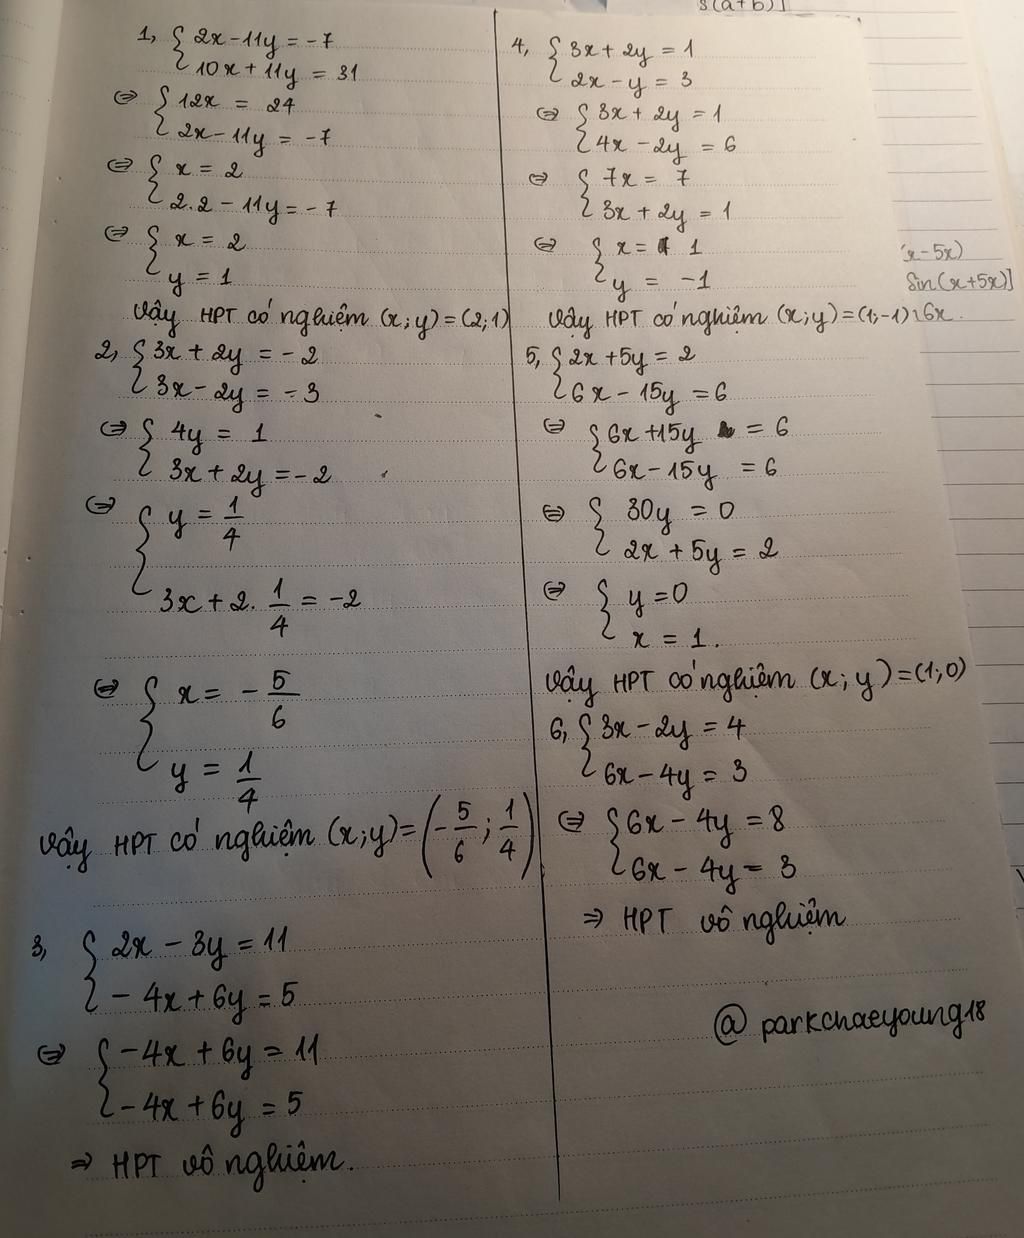 1, { 2x - 11y = -7
10x + 11y = 31
⇔ { 12x = 24
2x - 11y = -7
⇔ { x = 2
2.2 - 11y = -7
⇔ { x = 2
y = 1
Vậy HPT có nghiệm (x;y) = (2;1)
2, { 3x + 2y = -2
3x - 2y = -3
⇔ { 4y = 1
3x + 2y = -2
⇔ { y = 1/4
3x + 2. 1/4 = -2
⇔ { x = - 5/6
y = 1/4
Vậy HPT có nghiệm (x;y) = (-5/6; 1/4)
3, { 2x - 3y = 11
-4x + 6y = 5
⇔ { -4x + 6y = 11
-4x + 6y = 5
⇒ HPT vô nghiệm.
4, { 3x + 2y = 1
2x - y = 3
⇔ { 3x + 2y = 1
4x - 2y = 6
⇔ { 7x = 7
3x + 2y = 1
⇔ { x = 1
y = -1
Vậy HPT có nghiệm (x;y) = (1;-1)
5, { 2x + 5y = 2
6x - 15y = 6
⇔ { 6x + 15y = 6
6x - 15y = 6
⇔ { 30y = 0
2x + 5y = 2
⇔ { y = 0
x = 1.
Vậy HPT có nghiệm (x;y) = (1;0)
6, { 3x - 2y = 4
6x - 4y = 3
⇔ { 6x - 4y = 8
6x - 4y = 3
⇒ HPT vô nghiệm
@ parkchaeyoung18
(a+b)]
x-5x)
Sin(x+5x)]
6x.